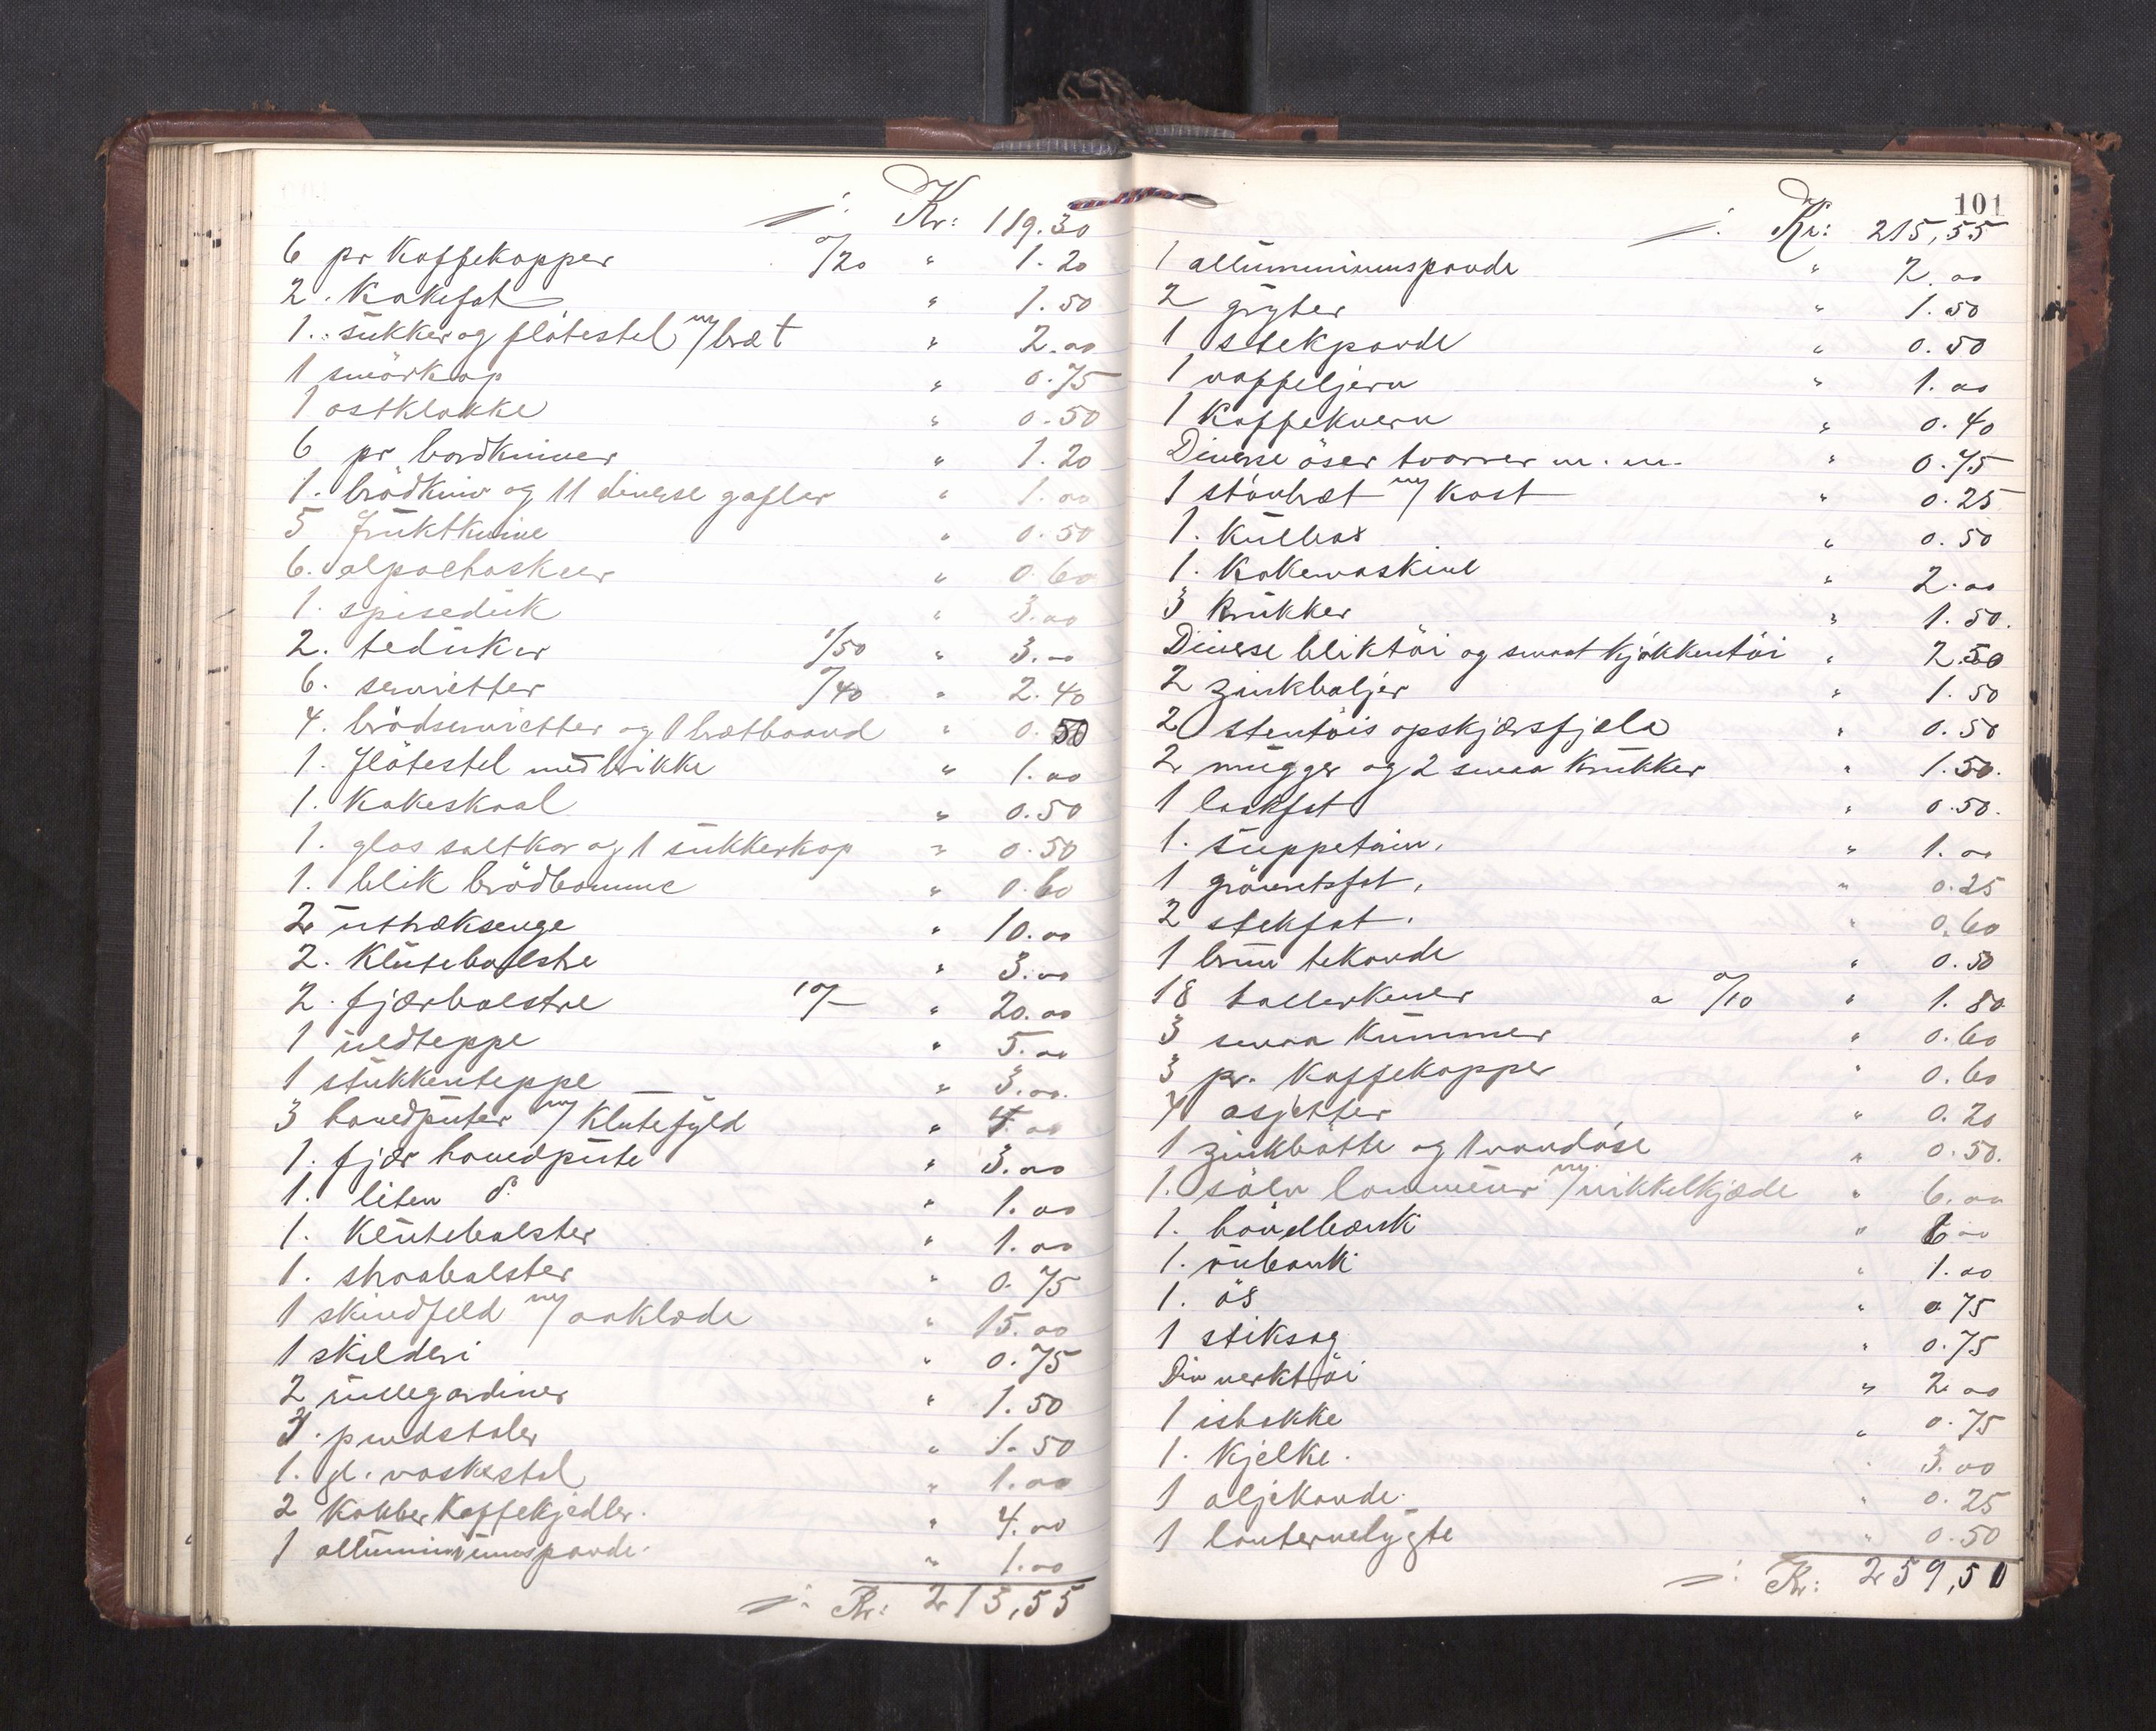 ÷ Kr: 119.30
6 pr kaffekopper 0/20 " 1.20
2. kakefat " 1.50
1. sukker og fløtestel m/bræt " 2.00
1 smörkop " 0.75
1 ostklokke " 0.50
6 pr bordkniver " 1.20
1. brödkniv og 11 diverse gafler " 1.00
5 fruktknive " 0.50
6. alpacaskeer " 0.60
1. spiseduk " 3.00
2. teduker 1/50 " 3.00
6. servietter 0/40 " 2.40
4. brödservietter og 1 brætbaand " 0.50
1. flötestel med brikke " 1.00
1. kakeskaal " 0.50
1. glas saltkar og 1 sukkerkop " 0.50
1. blik brödbomme " 0.60
2 uttræksenge " 10.00
2. klutebolstre " 3.00
2. fjærbolstre 10/- " 20.00
1 uldteppe " 5.00
1 stükkenteppe " 3.00.
3 hovedputer m/ klutefyld " 4.00
1. fjær hovedpute " 3.00
1. liten do. " 1.00
1. klutebolster " 1.00
1. straabolster " 0.75
1 skindfeld m/ aaklæde " 15.00
1 skilderi " 0.75
2 rullegardiner " 1.50
3. pindstoler " 1.50
1. gl. vaskestel " 1.00
2 kobber kaffekjedler. " 4.00
1 alluminiumspande. " 1.00
÷ Kr: 213,55
101
÷ Kr: 215,55
1 alluminiumspande " 2.00
2 gryter " 1.50
1 stekpande " 0.50
1 vaffeljern " 1.00
1 kaffekvern " 0.40
Diverse öser tvorer m.m. " 0.75
1 stövbræt m/ kost " 0.25
1. kulboks " 0.50
1. kokemaskine " 2.00
3 krukker " 1.50.
Diverse bliktöi og smaat kjøkkentöi " 2.50
2 zinkbaljer " 1.50
2 stentöis opskjærsfjele " 0.50
2 mugger og 2 smaa krukker " 1.50.
1 laakfat " 0.50.
1. suppeterin. " 1.00
1 grönnetsfat. " 0.25
2 stekfat. " 0.60
1 brun tekande " 0.50
18 tallerkener a 0/10 " 1.80
3 smaa kummer " 0.60
3 pr. kaffekopper " 0.60
4 asjetter " 0.20
1 zinkbötte og 1 vandöse " 0.50.
1. sölv lommeur m/nikkelkjæde " 6.00
1. hövelbænk " 6.00
1. rubank " 1.00
1. ös " 0.75
1 stiksag " 0.75
Div verktöi " 2.00
1 ishakke " 0.75
1. kjelke. " 3.00
1 oljekande. " 0.25
1 lanternelygte " 0.50
÷ Kr: 259,50